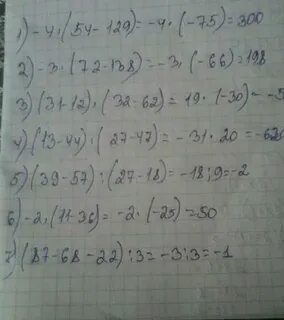 1) -4·(54-129)=-4·(-75)=300
2) -3·(72-138)=-3·(-66)=198
3) (31-12)·(32-62)=19·(-30)=-5
4) (13-44)·(27-47)=-31·20=-620
5) (39-57):(27-18)=-18:9=-2
6) -2·(11-36)=-2·(-25)=50
7) (87-68-22):3=-3:3=-1